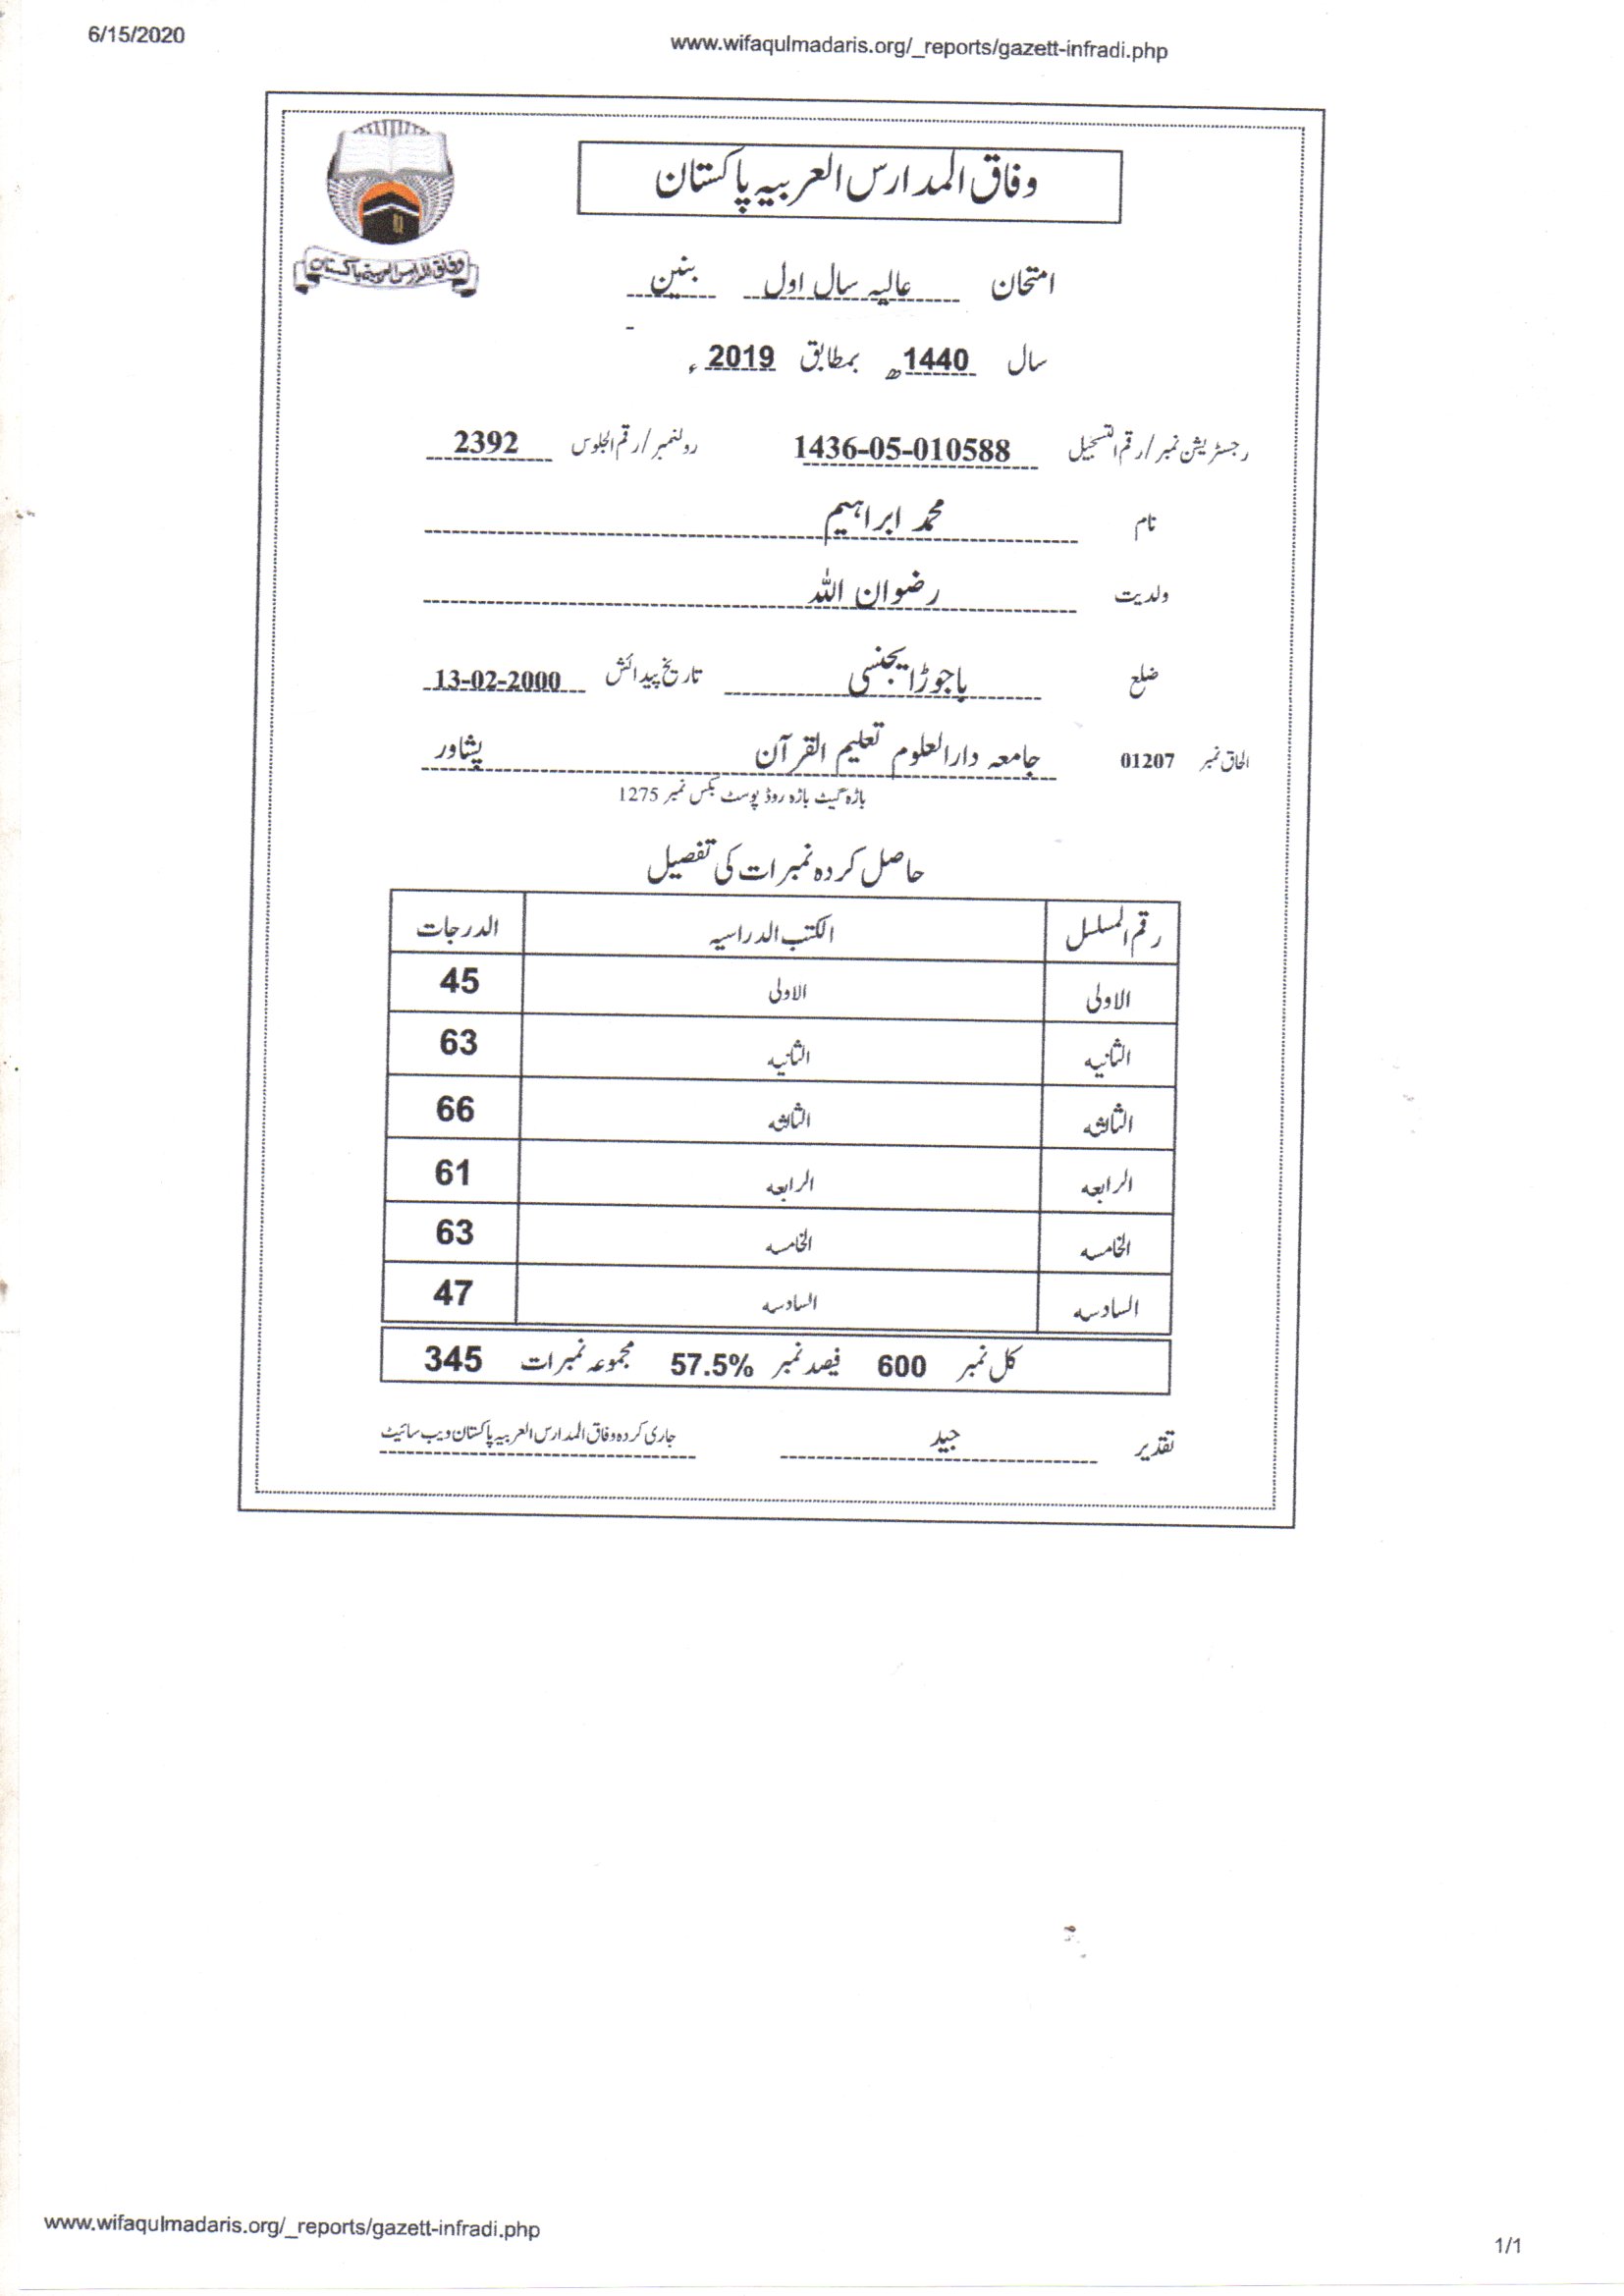 6/15/2020
www.wifaqulmadaris.org/_reports/gazett-infradi.php
وفاق المدارس العربیہ پاکستان
وفاق المدارس العربیہ پاکستان
امتحان عالیہ سال اول بنین
سال 1440ھ بمطابق 2019ء
رجسٹریشن نمبر/رقم التسجیل 1436-05-010588 رولنمبر/رقم الجلوس 2392
نام محمد ابراہیم
ولدیت رضوان اللہ
ضلع باجوڑ ایجنسی تاریخ پیدائش 13-02-2000
الحاق نمبر 01207 جامعہ دارالعلوم تعلیم القرآن پشاور
باڑہ گیٹ باڑہ روڈ پوسٹ بکس نمبر 1275
حاصل کردہ نمبرات کی تفصیل
رقم المسلسل الکتب الدراسیہ الدرجات
الاولی الاولی 45
الثانیہ الثانیہ 63
الثالثہ الثالثہ 66
الرابعہ الرابعہ 61
الخامسہ الخامسہ 63
السادسہ السادسہ 47
کل نمبر 600 فیصد نمبر 57.5% مجموعہ نمبرات 345
تقدیر جید جاری کردہ وفاق المدارس العربیہ پاکستان ویب سائیٹ
www.wifaqulmadaris.org/_reports/gazett-infradi.php
1/1